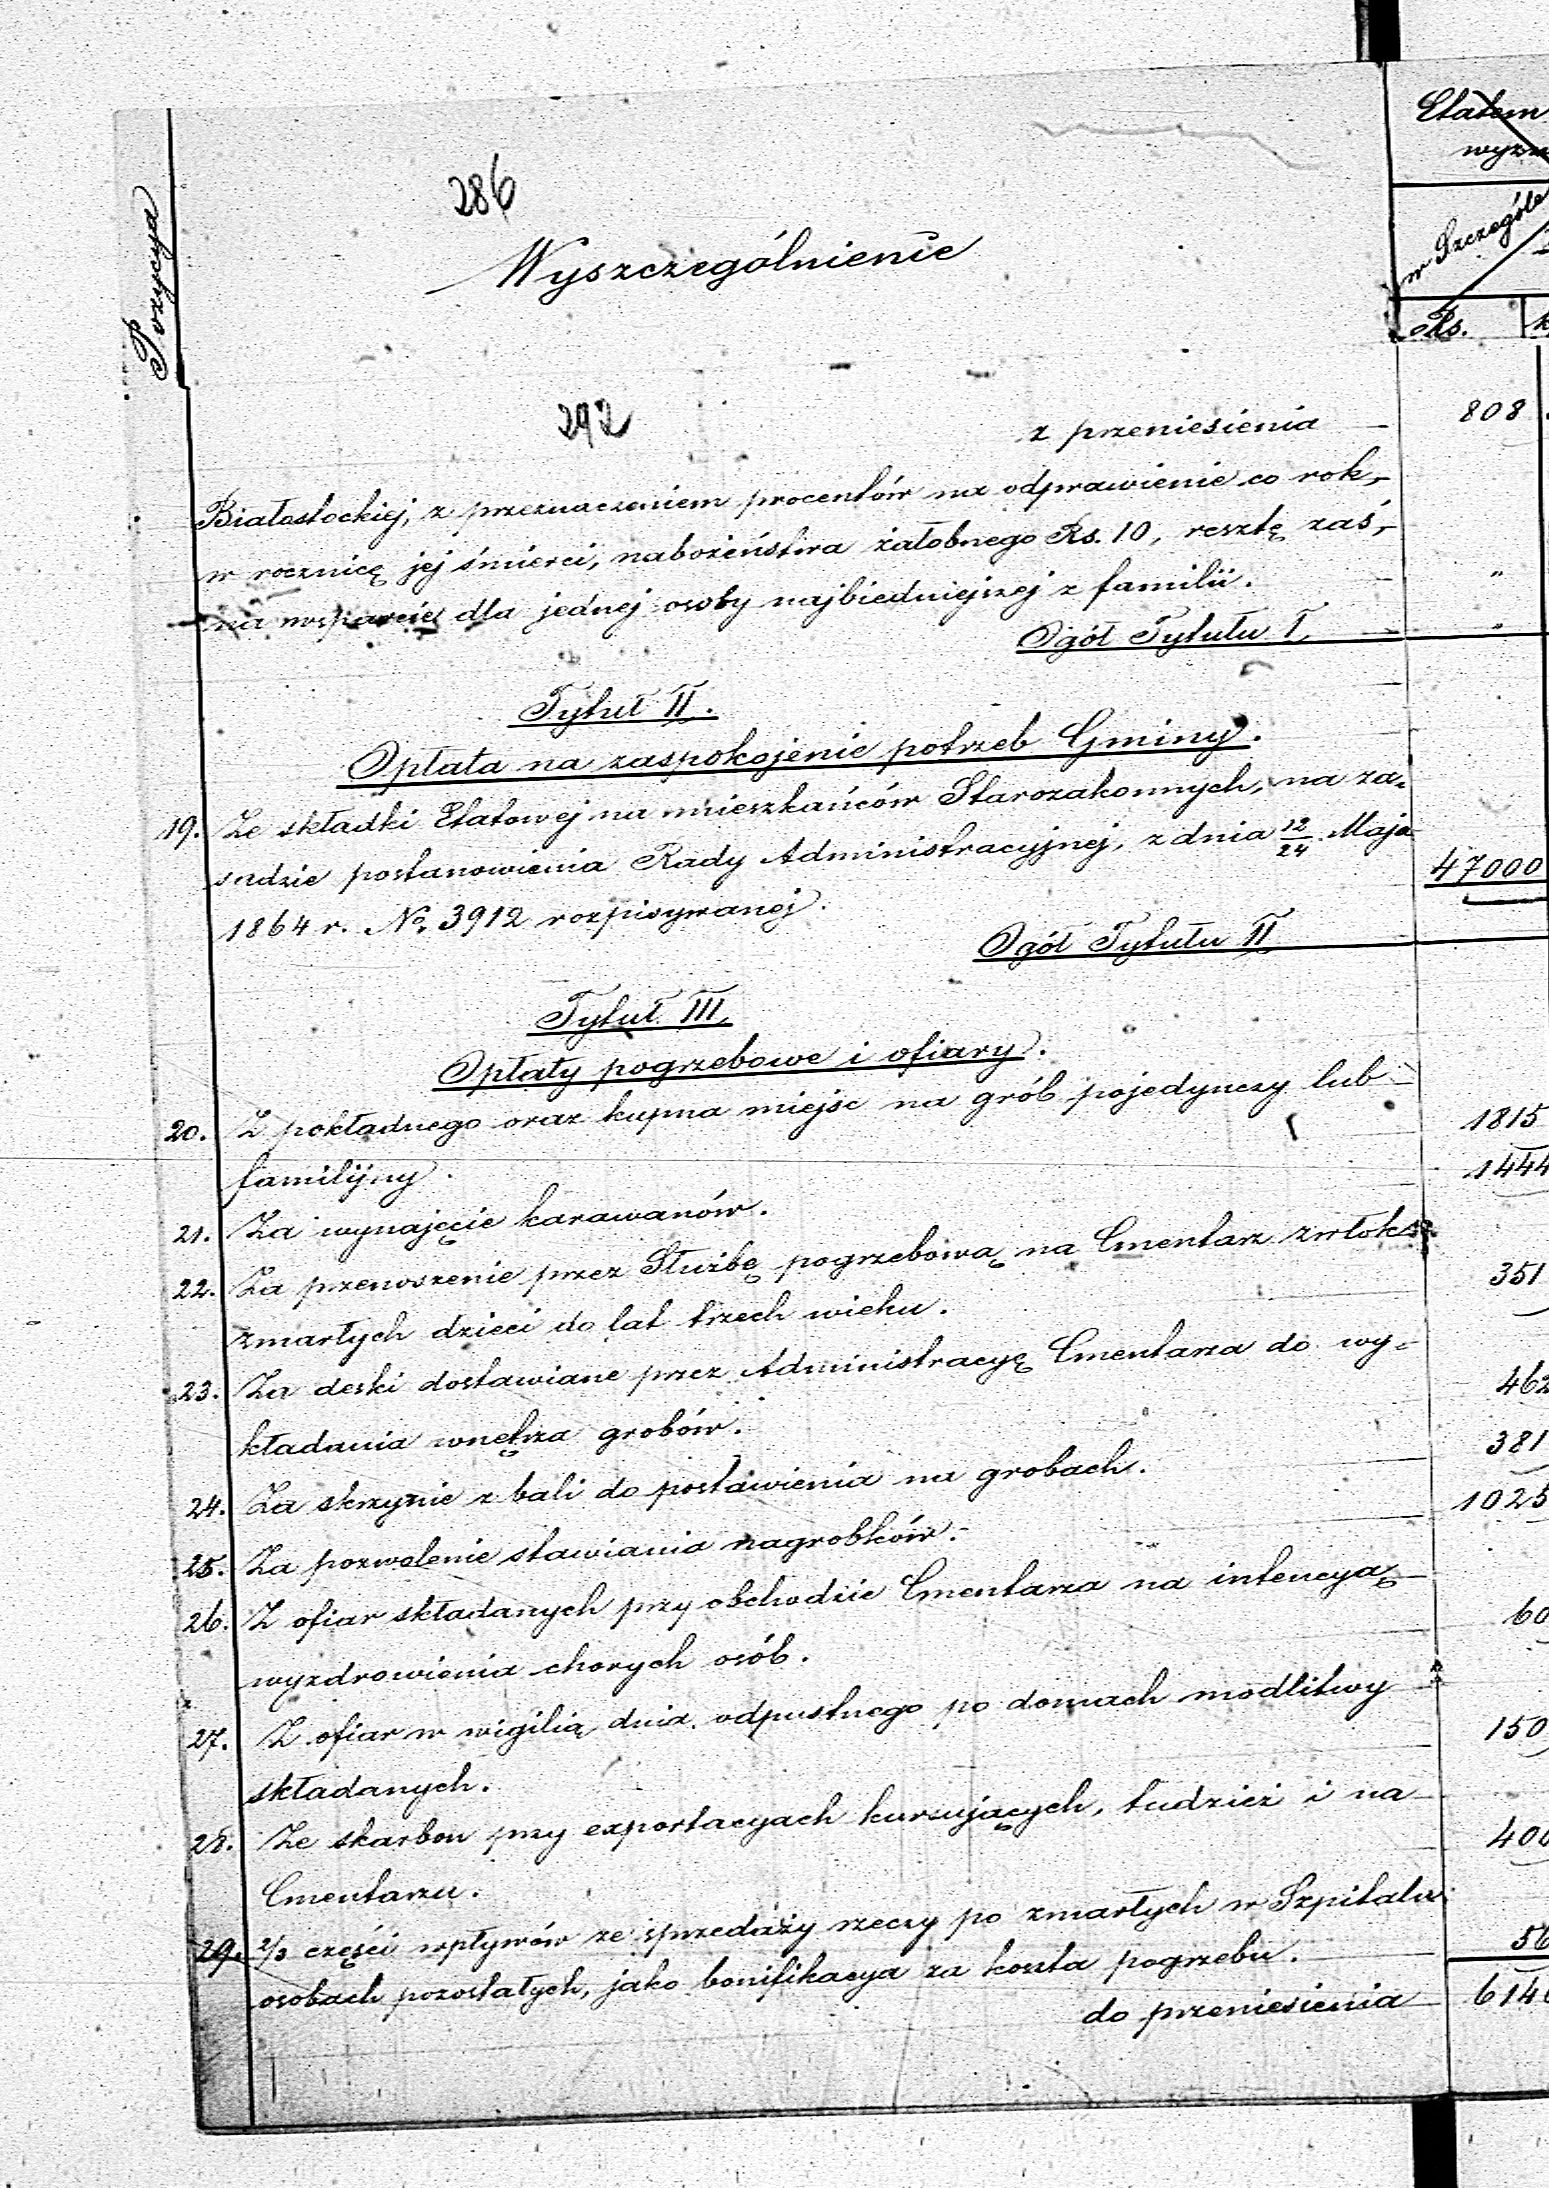 Etatem
286
Pozycya
Wyszczególnienie
w Szczególe
Rs.
292
z przeniesienia 808
Białostockiej, z przeznaczeniem procentów na odprawienie co rok,
w rocznicę jej śmierci, nabożeństwa żałobnego Rs. 10, resztę zaś,
na wsparcie dla jednej osoby najbiedniejszej z familii. "
Ogół Tytułu I "
Tytuł II.
Opłata na zaspokojenie potrzeb Gminy.
19. Ze składki Etatowej na mieszkańców Starozakonnych, na za=
sadzie postanowienia Rady Administracyjnej, z dnia 12/24 Maja
1864 r. No. 3912 rozpisywanej. 47000
Ogół Tytułu II
Tytuł III
Opłaty pogrzebowe i ofiary.
20. Z pokładnego oraz kupna miejsc na grób pojedynczy lub
familijny. 1815
21. Za wynajęcie karawanów. 1444
22. Za przenoszenie przez Służbę pogrzebową na Cmentarz zwłok
zmarłych dzieci do lat trzech wieku. 351
23. Za deski dostawiane przez Administracyę Cmentarza do wy=
kładania wnętrza grobów. 462
24. Za skrzynie z bali do postawienia na grobach. 381
25. Za pozwolenie stawiania nagrobków. 1025
26. Z ofiar składanych przy obchodzie Cmentarza na intencyą
wyzdrowienia chorych osób. 60
27. Z ofiar w wigilią dnia odpustnego po domach modlitwy
składanych. 150
28. Ze skarbon przy exportacyach kursujących, tudzież i na
Cmentarzu. 400
29. 2/3 części wpływów ze sprzedaży rzeczy po zmarłych w Szpitalu
osobach pozostałych, jako bonifikacya za koszta pogrzebu. 56
do przeniesienia